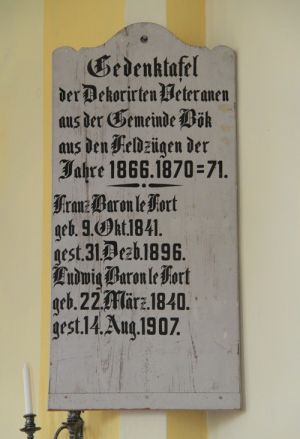 Gedenktafel
der Dekorirten Veteranen
aus der Gemeinde Bök
aus den Feldzügen der
Jahre 1866.1870=71.
Franz Baron le Fort
geb. 9. Okt. 1841.
gest. 31. Dezb. 1896.
Ludwig Baron le Fort
geb. 22. März. 1840.
gest. 14. Aug. 1907.